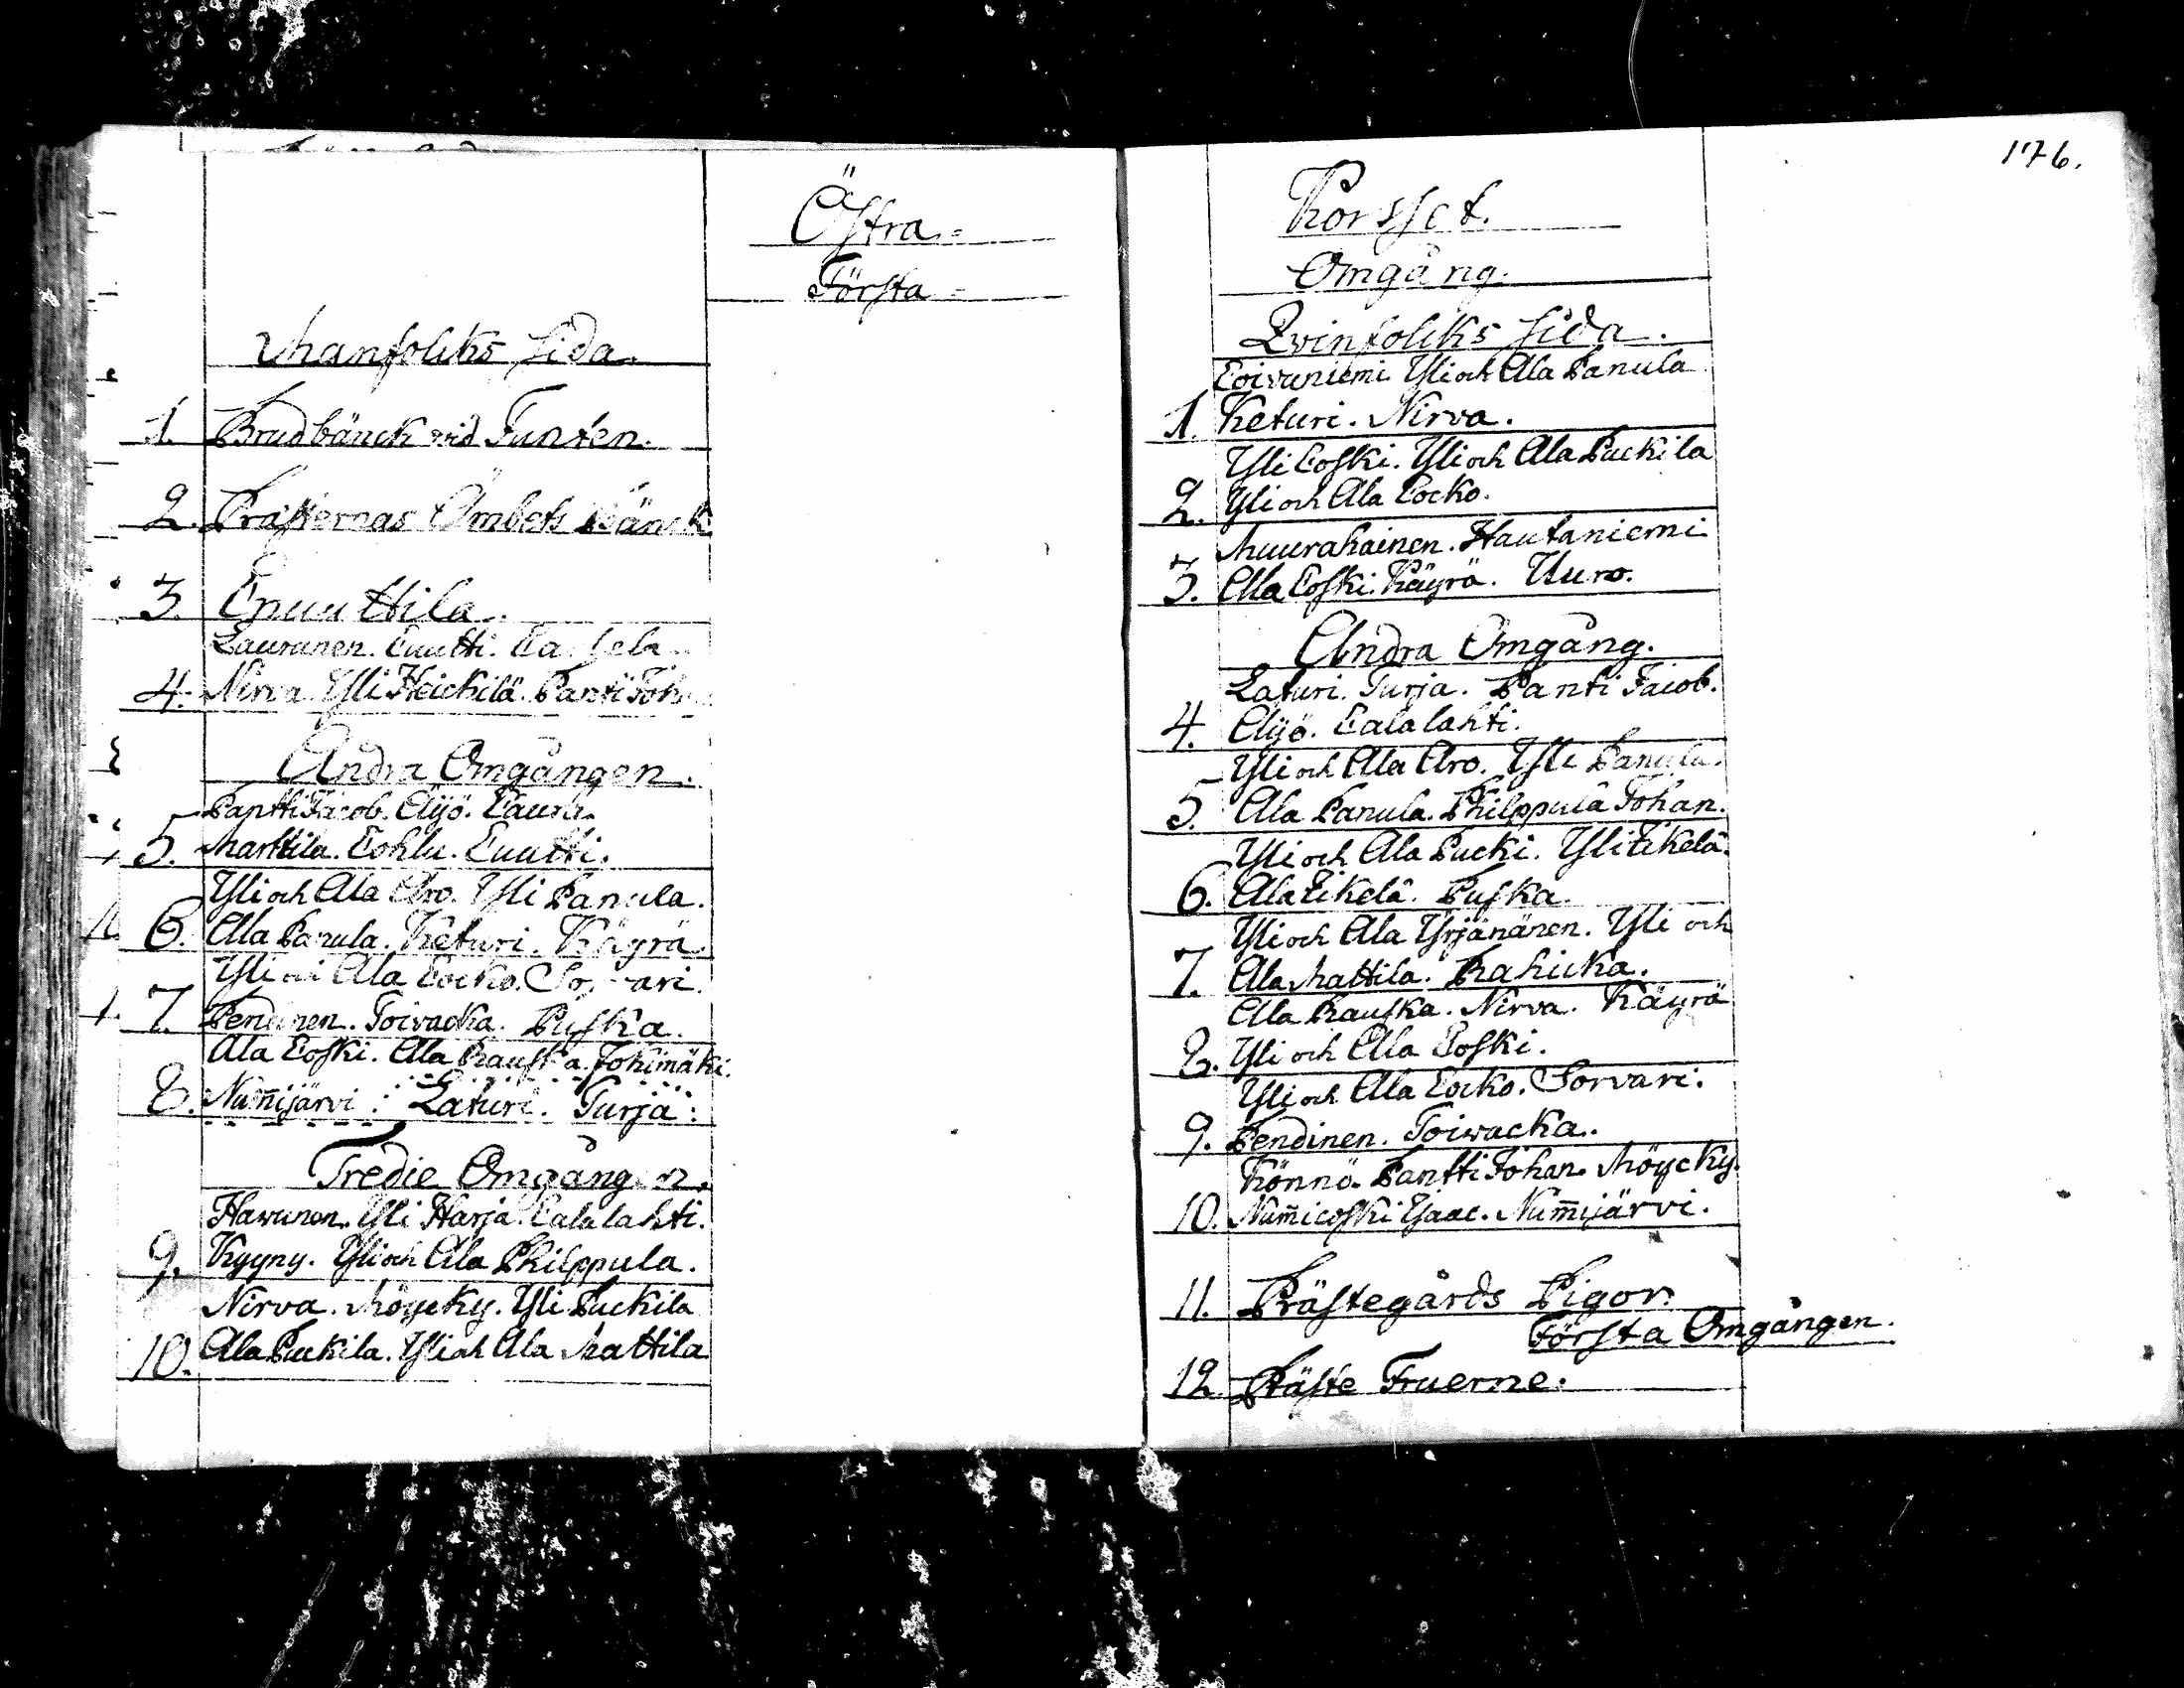 176.
Östra=
Första=
Manfolks Sida.
1. Brudbänck vid Funten.
2. Prästernas Ämbets Bänck
3. Cnuuttila.
Laurunen. Cuutti.
4. Nirva Yli Heickilä. Pantti Joh
Andra Omgången.
Pantti Jacob. Äijö. Laurila
5. Marttila. Cohlu. Cuutti.
Yli och Ala Aro. Yli Panula.
6. Ala Panula. Keturi. Käyrä.
Yli och Ala Cocko. Sorvari.
7. Pendinen. Toivacka. Puska.
Ala Coski. Ala Rauska. Jokimäki.
8. Num̄ijärvi. Laturi. Turja.
Tredie Omgången.
Havunen. Yli Harja. Calalahti.
9. Kyyny. Yli och Ala Philppula.
Nirva. Möycky. Yli Luckila
10. Ala Luckila. Yli och Ala Mattila
Korsset.
Omgång.
Qvinfolks Sida.
Coivuniemi Yli och Ala Panula
1. Keturi. Nirva.
Yli Coski. Yli och Ala Luckila
2. Yli och Ala Cocko.
Muurahainen. Hautaniemi
3. Ala Coski. Käyrä. Uuro.
Andra Omgång.
Laturi. Turja. Panti Jacob.
4. Äijö. Calalahti.
Yli och Ala Aro. Yli Panula.
5. Ala Panula. Philppula Johan.
Yli och Ala Lucki. Yli Tikelä.
6. Ala Tikelä. Puska.
Yli och Ala Yrjänänen. Yli och
7. Ala Mattila. Rahicka.
Ala Rauska. Nirva. Käyrä
8. Yli och Ala Coski.
Yli och Ala Cocko. Sorvari.
9. Pendinen. Toivacka.
Könnö. Pantti Johan. Möycky.
10. Num̄icoski Isaac. Num̄ijärvi.
11. Prästegårds Pigor.
Första Omgången.
12. Präste Fruerne.